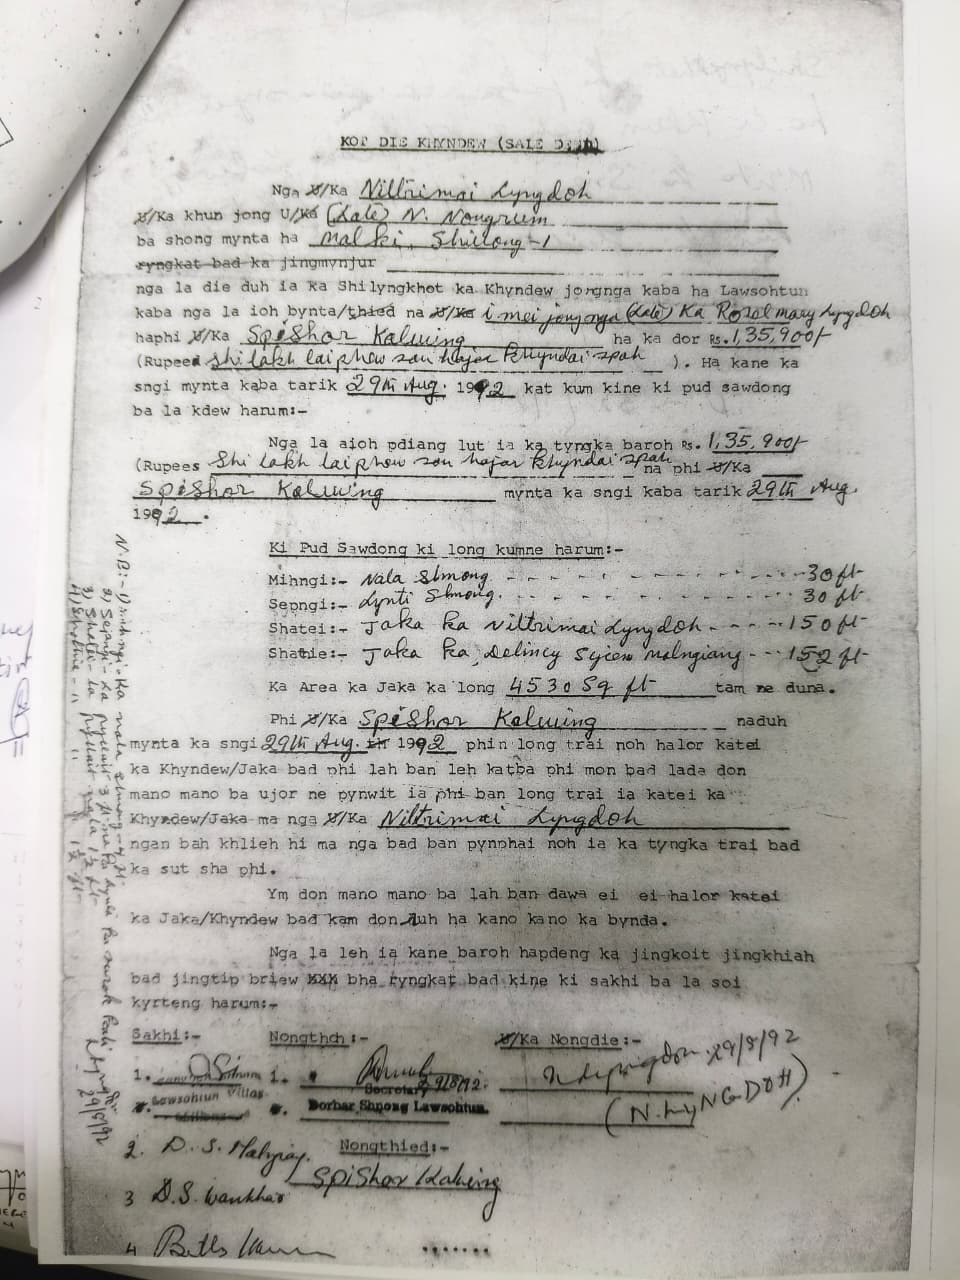 KOT DIE KHYNDEW (SALE DEED)
Nga U/Ka Niltrimai Lyngdoh
U/Ka khun jong U/Ka (Late) N. Nongrum
ba shong mynta ha Malki, Shillong-1
ryngkat bad ka jingmynjur
nga la die duh ia ka Shilyngkhot ka Khyndew jongnga kaba ha Lawsohtun
kaba nga la ioh bynta/thied na U/Ka i mei jong nga (Late) Ka Rosal mary Lyngdoh
haphi U/Ka Spishor Kalwing ha ka dor Rs. 1,35,900/-
(Rupees Shi lakh laiphew san hajar khyndai spah ). Ha kane ka
sngi mynta kaba tarik 29th Aug. 1992 kat kum kine ki pud sawdong
ba la kdew harum:-
Nga la aioh pdiang lut ia ka tyngka baroh Rs. 1,35,900/-
(Rupees Shi lakh laiphew san hajar khyndai spah na phi U/Ka
Spishor Kalwing mynta ka sngi kaba tarik 29th Aug.
1992.
Ki Pud Sawdong ki long kumne harum:-
Mihngi:- Nala Shnong - - - 30 ft
Sepngi:- Lynti Shnong. - - - 30 ft
Shatei:- Jaka ka Niltrimai Lyngdoh - - - 150 ft
Shathie:- Jaka ka Delincy Syiem Malngiang - - - 152 ft
Ka Area ka Jaka ka long 4530 Sq ft tam ne duna.
Phi U/Ka Spishor Kalwing naduh
mynta ka sngi 29th Aug. 1992 phin long trai noh halor katei
ka Khyndew/Jaka bad phi lah ban leh katba phi mon bad lada don
mano mano ba ujor ne pynwit ia phi ban long trai ia katei ka
Khyndew/Jaka ma nga U/Ka Niltrimai Lyngdoh
ngan bah khlieh hi ma nga bad ban pynphai noh ia ka tyngka trai bad
ka sut sha phi.
Ym don mano mano ba lah ban dawa ei ei halor katei
ka Jaka/Khyndew bad kam don duh ha kano kano ka bynda.
Nga la leh ia kane baroh hapdeng ka jingkoit jingkhiah
bad jingtip briew XXX bha ryngkat bad kine ki sakhi ba la soi
kyrteng harum:-
Sakhi:- Nongthoh:- U/Ka Nongdie:-
1. 1. N Lyngdoh 29/8/92
29/8/92.
Secretary
Lawsohtun Village Dorbar Shnong Lawsohtun.
(N. LyNGDOH)
2. D. S. Malngiang. Nongthied:-
Spishor Kalwing
3 D.S. Wankhar
4
N.B:- 1) Mihngi - Ka nala Shnong
2) Sepngi - La pynait 3 ft
3) Shatei - la pynait
4) Shathie - "
29/8/92